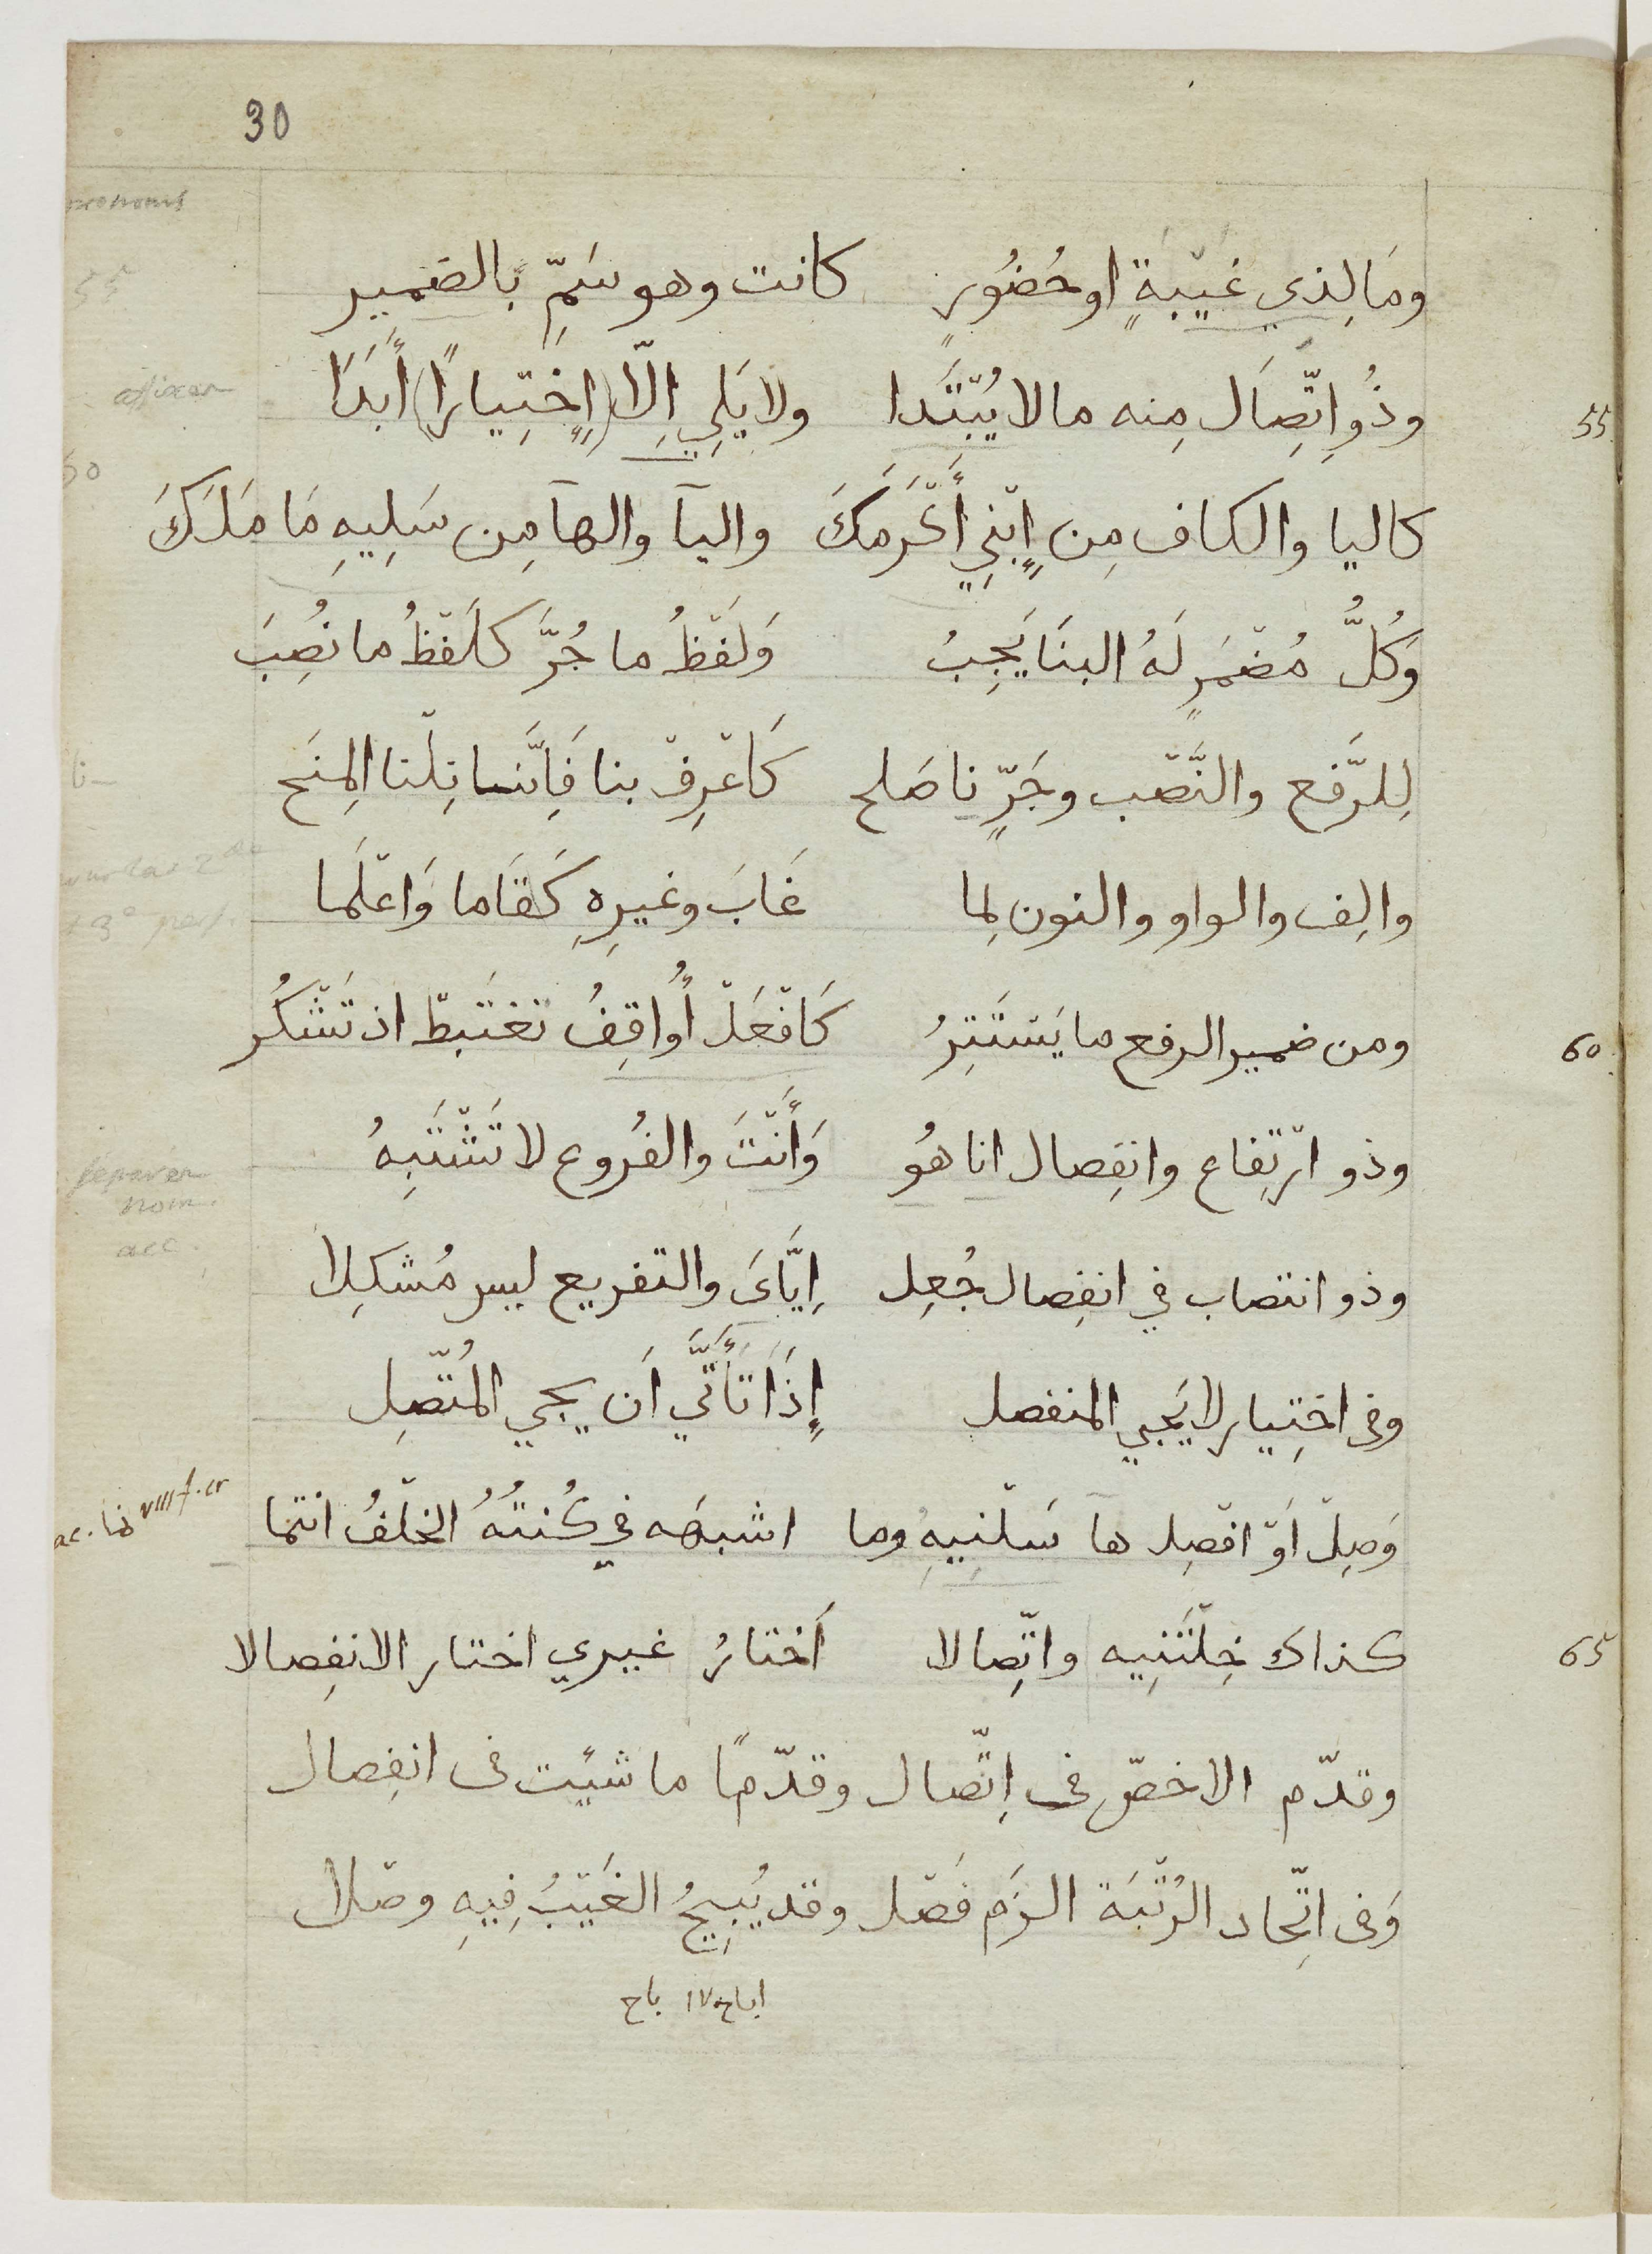 30
pronoms
ومَا لِذي غَيْبةٍ او حُضُورٍ كانت وهو سَمِّ بالضمير
55
affixes
وذُو اتِّصَال مِنه مالا يُبْتَدا ولا يَلِي اِلّا (اِخْتِيارًا) أَبَدَا
55
كاليا والكاف مِن اِبْنِي أَكْرَمَكَ واليآ والهآ مِن سَلِيهِ مَا مَلَكَ
وَكُلُّ مُضْمَرٍ لَهُ البنَا يَجِبُ وَلَفْظُ ما جُرَّ كلَفْظُ ما نُصِبَ
لِلرَّفع والنَّصْب وجَرٍّ نا صَلح كَاعْرِفْ بنا فَاِنَّنا نِلْنا المِنَح
نا
والِف والواو والنون لِما غَابَ وغيرِهِ كَقَاما وَاعْلَما
ومن ضمير الرفع ما يَسْتَتِرُ كَافْعَلْ أُواقِفُ تغْتَبطْ اذ تَشْكُر
60
وذو ارْتِفاع وانفِصال انا هُو وَأَنْتَ والفُروع لا تَشْتَبِهُ
séparés
nom.
acc.
وذو انتصاب في انفِصال جُعِل اِيَّاىَ والتفريع ليس مُشكِلا
وفى اخِتِيار لا يَجِي المنفصل إِذَا تَأَتَّي اَن يجي المُتّصِل
وَصِلْ اَوْ افْصِل ها سَلْنِيهِ وما اشبهَه في كُنتُهُ الخلْفُ انتما
كذاك خِلْتَنِيه واتِّصالا اَختارُ غيري اختار الانفِصالا
65
وقدّم الاخصّ فى اِتِّصال وقدّمًا ما شيئت فى انفِصال
وَفى اتِّحاد الرُتْبَة الزَم فَصْل وقد يُبِيحُ الغَيْبُ فِيهِ وصْلا
اباح IV باح